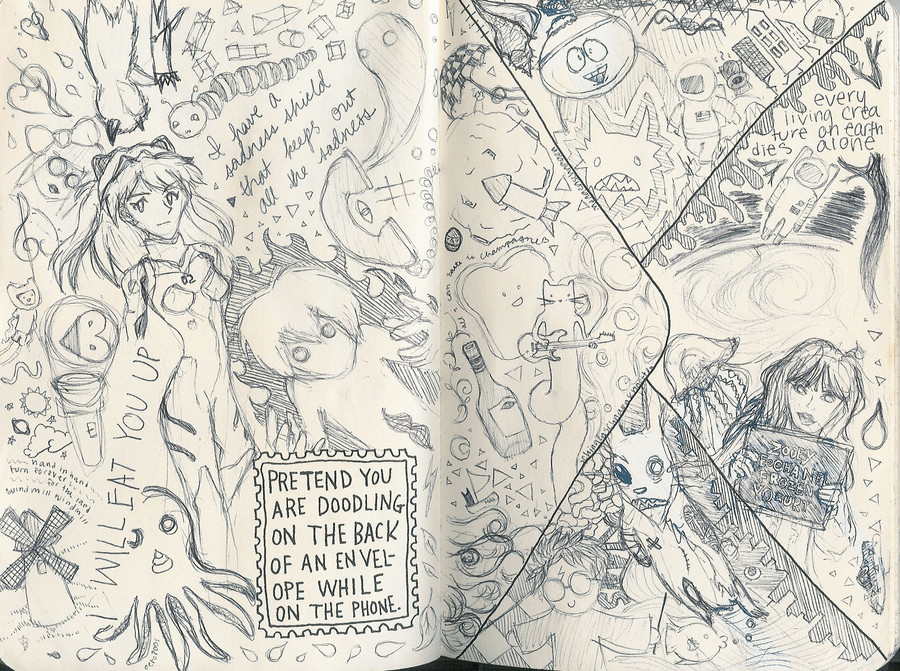 I have a
sadness shield
that keeps out
all the sadness
02
B
I WILL EAT YOU UP
hand in hand
turn forever
windmill
PRETEND YOU
ARE DOODLING
ON THE BACK
OF AN ENVEL-
OPE WHILE
ON THE PHONE.
taste is champagne
every
living crea
ture on earth
dies alone
ZOOEY